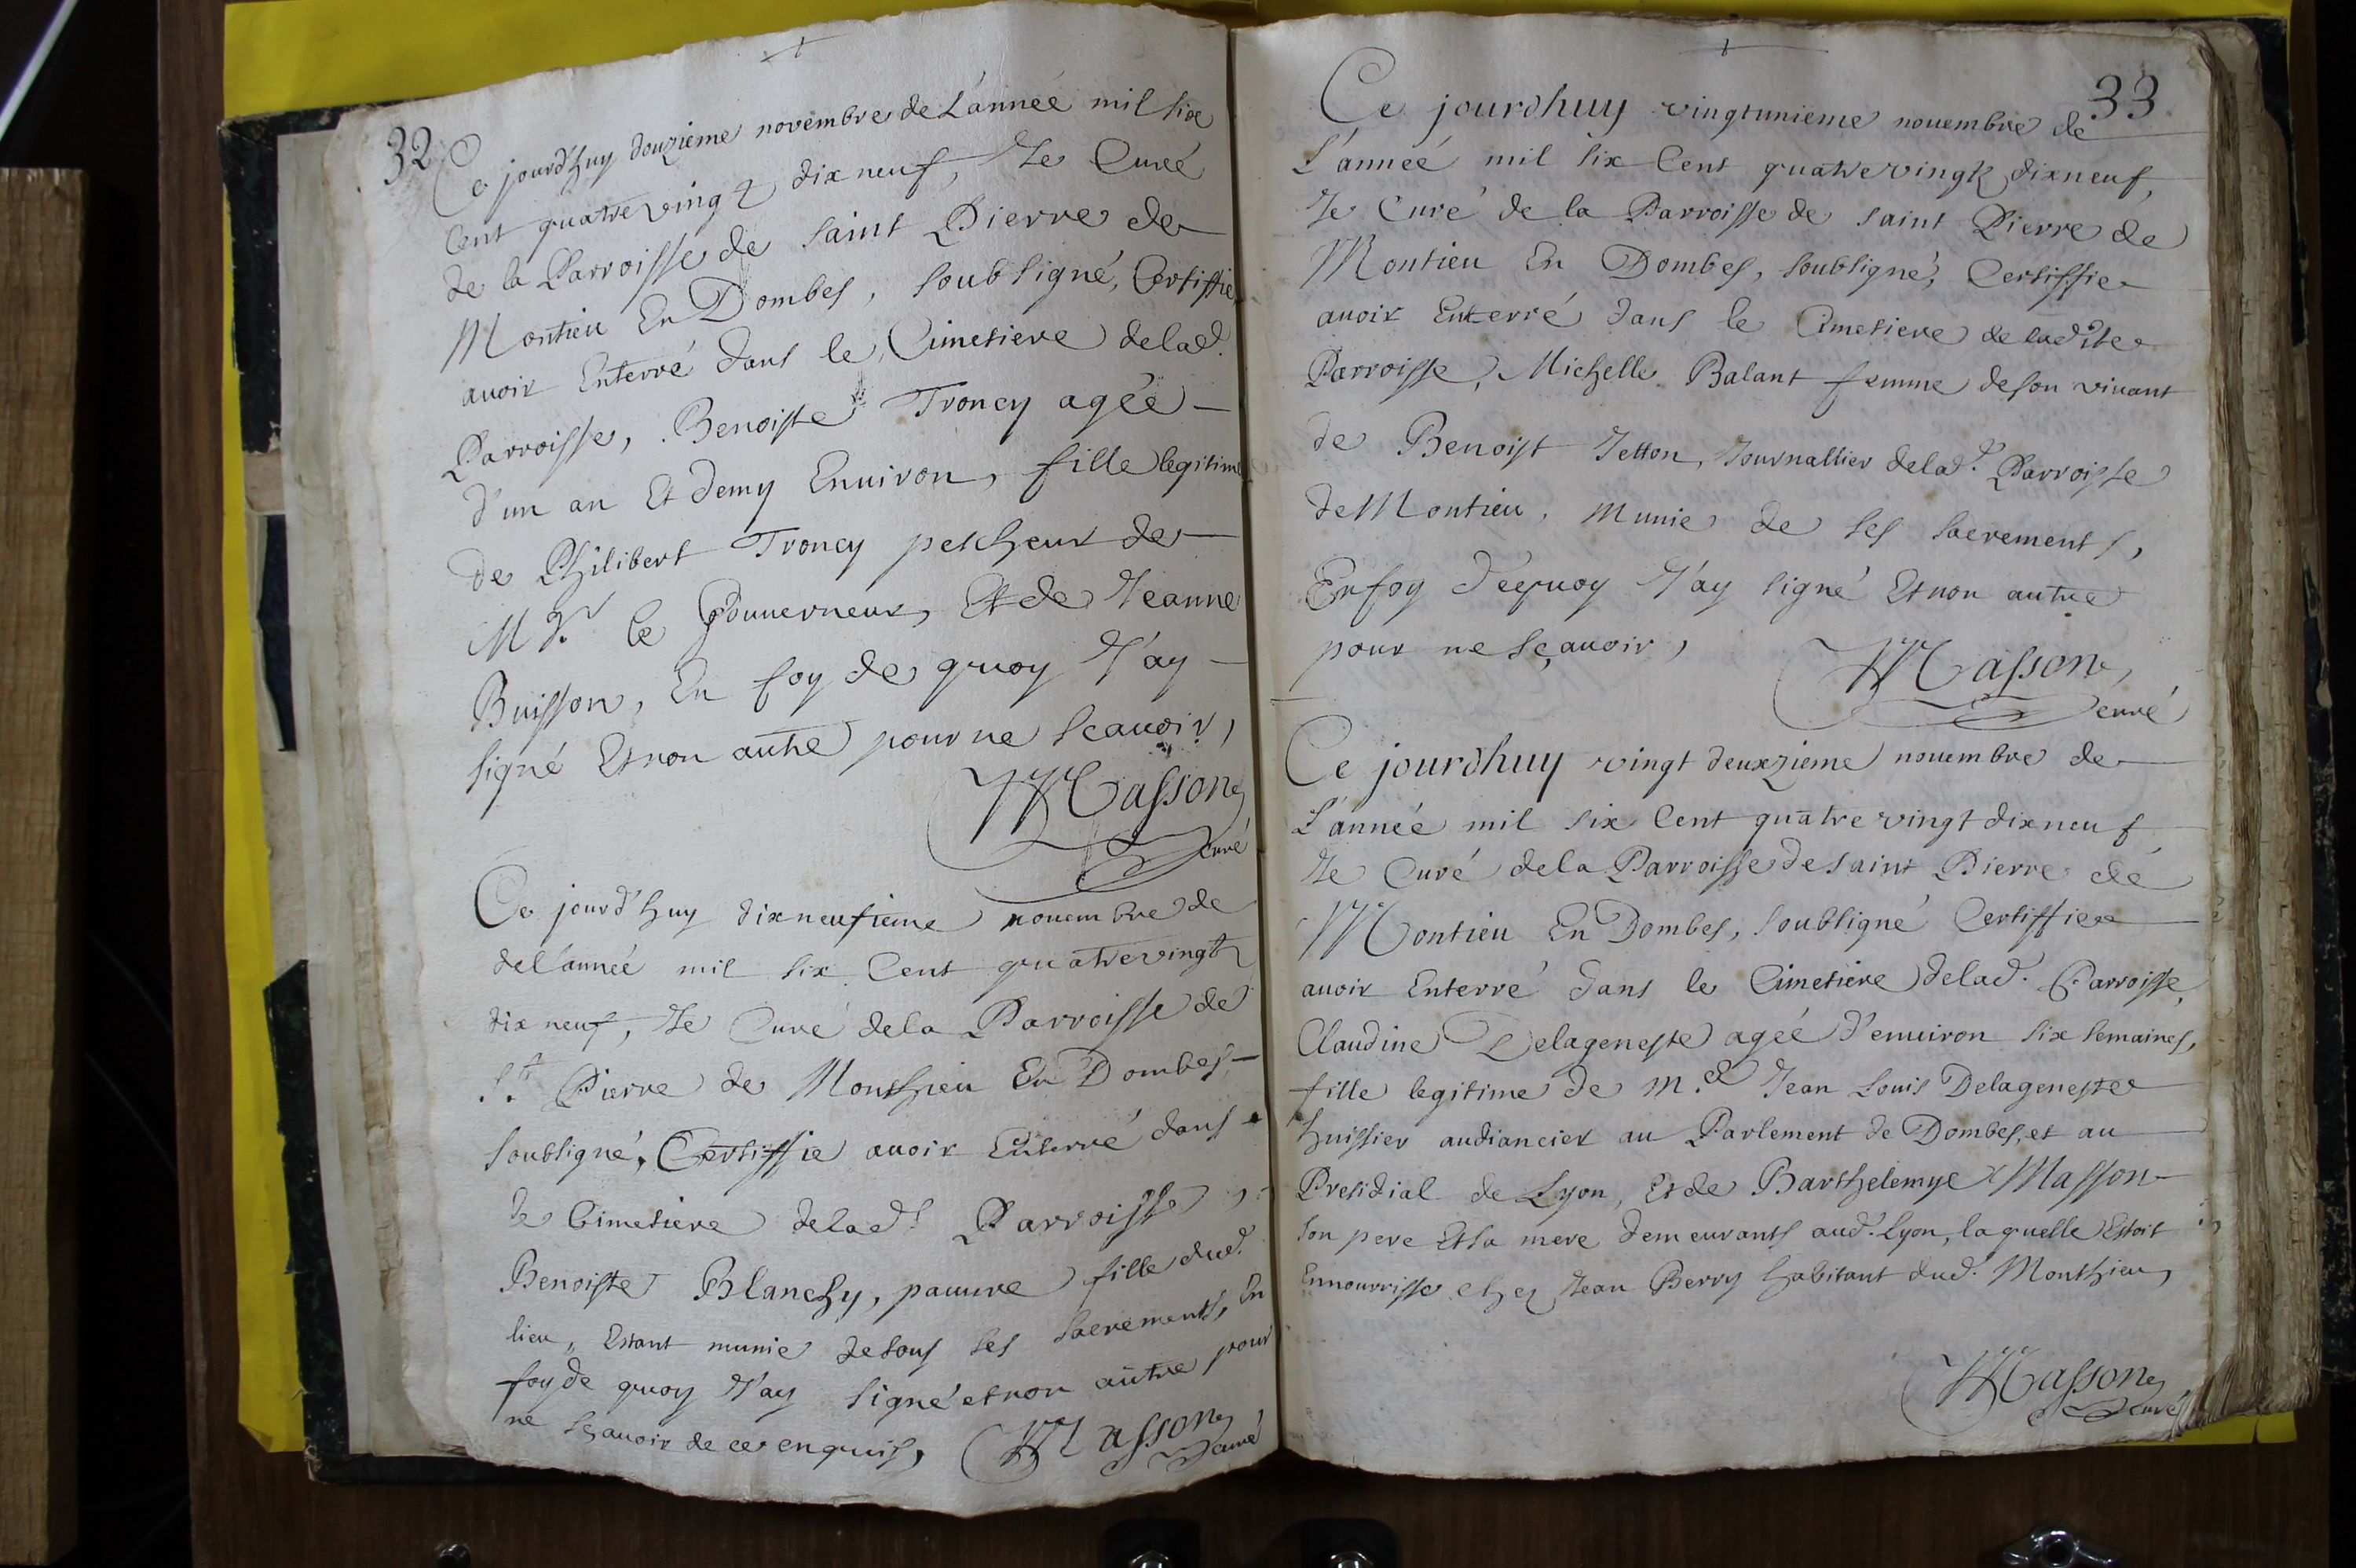 32
Ce jourd'huy douzieme novembre de L'année mil six
Cent quatre vingt dix neuf, Je Curé
de la Parroisse de saint Pierre de
Montieu En Dombes, soubsigné, Certiffie
avoir Enterré dans le Cimetiere de lad.
Parroisse, Benoiste Troncy agée
d'un an Et demy Environ, fille legitime
de Philibert Troncy pescheur de
Mgr. le Gouverneur, Et de Jeanne
Buisson, En foy de quoy J'ay
signé Et non autre pour ne scavoir,
Masson
curé
Ce jourd'huy dixneufieme nouembre de
de l'année mil six Cent quatre vingt
dix neuf, Je Curé de la Parroisse de
St. Pierre de Monthieu En Dombes,
soubsigné, Certiffie avoir Enterré dans
le Cimetiere de lad. Parroisse,
Benoiste Blanchy, pauure fille dud.
lieu, Estant munie de tous ses sacrements, En
foy de quoy J'ay signé et non autre pour
ne sçavoir de ce enquis, Masson
curé
33
Ce jourdhuy vingtunieme nouembre de
L'année mil six Cent quatre vingt dixneuf,
Je Curé de la Parroisse de saint Pierre de
Montieu En Dombes, soubsigné, Certiffie
auoir Enterré dans le Cimetiere de ladite
Parroisse, Michelle Balant femme de son vivant
de Benoist Jetton, Journallier de lad. Parroisse
de Montieu, munie de ses sacrements,
En foy dequoy J'ay signé Et non autre
pour ne sçavoir,
Masson
curé
Ce jourdhuy vingt deuxzieme nouembre de
L'année mil six Cent quatre vingt dixneuf
Je Curé de la Parroisse de saint Pierre de
Montieu En Dombes, soubsigné Certiffie
auoir Enterré dans le Cimetiere de lad. Parroisse,
Claudine Delageneste agée d'enuiron six semaines,
fille legitime de Me. Jean Louis Delageneste
huissier audiancier au Parlement de Dombes, et au
Presidial de Lyon, Et de Barthelemye Masson
son pere Et sa mere demeurants aud. Lyon, laquelle Estoit
Ennourrisse chez Jean Berry habitant dud. Monthieu,
Masson
curé